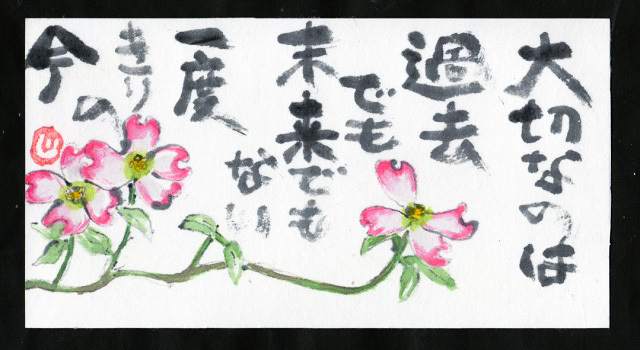 大切なのは
過去
でも
未来でも
ない
一度
きり
の
今